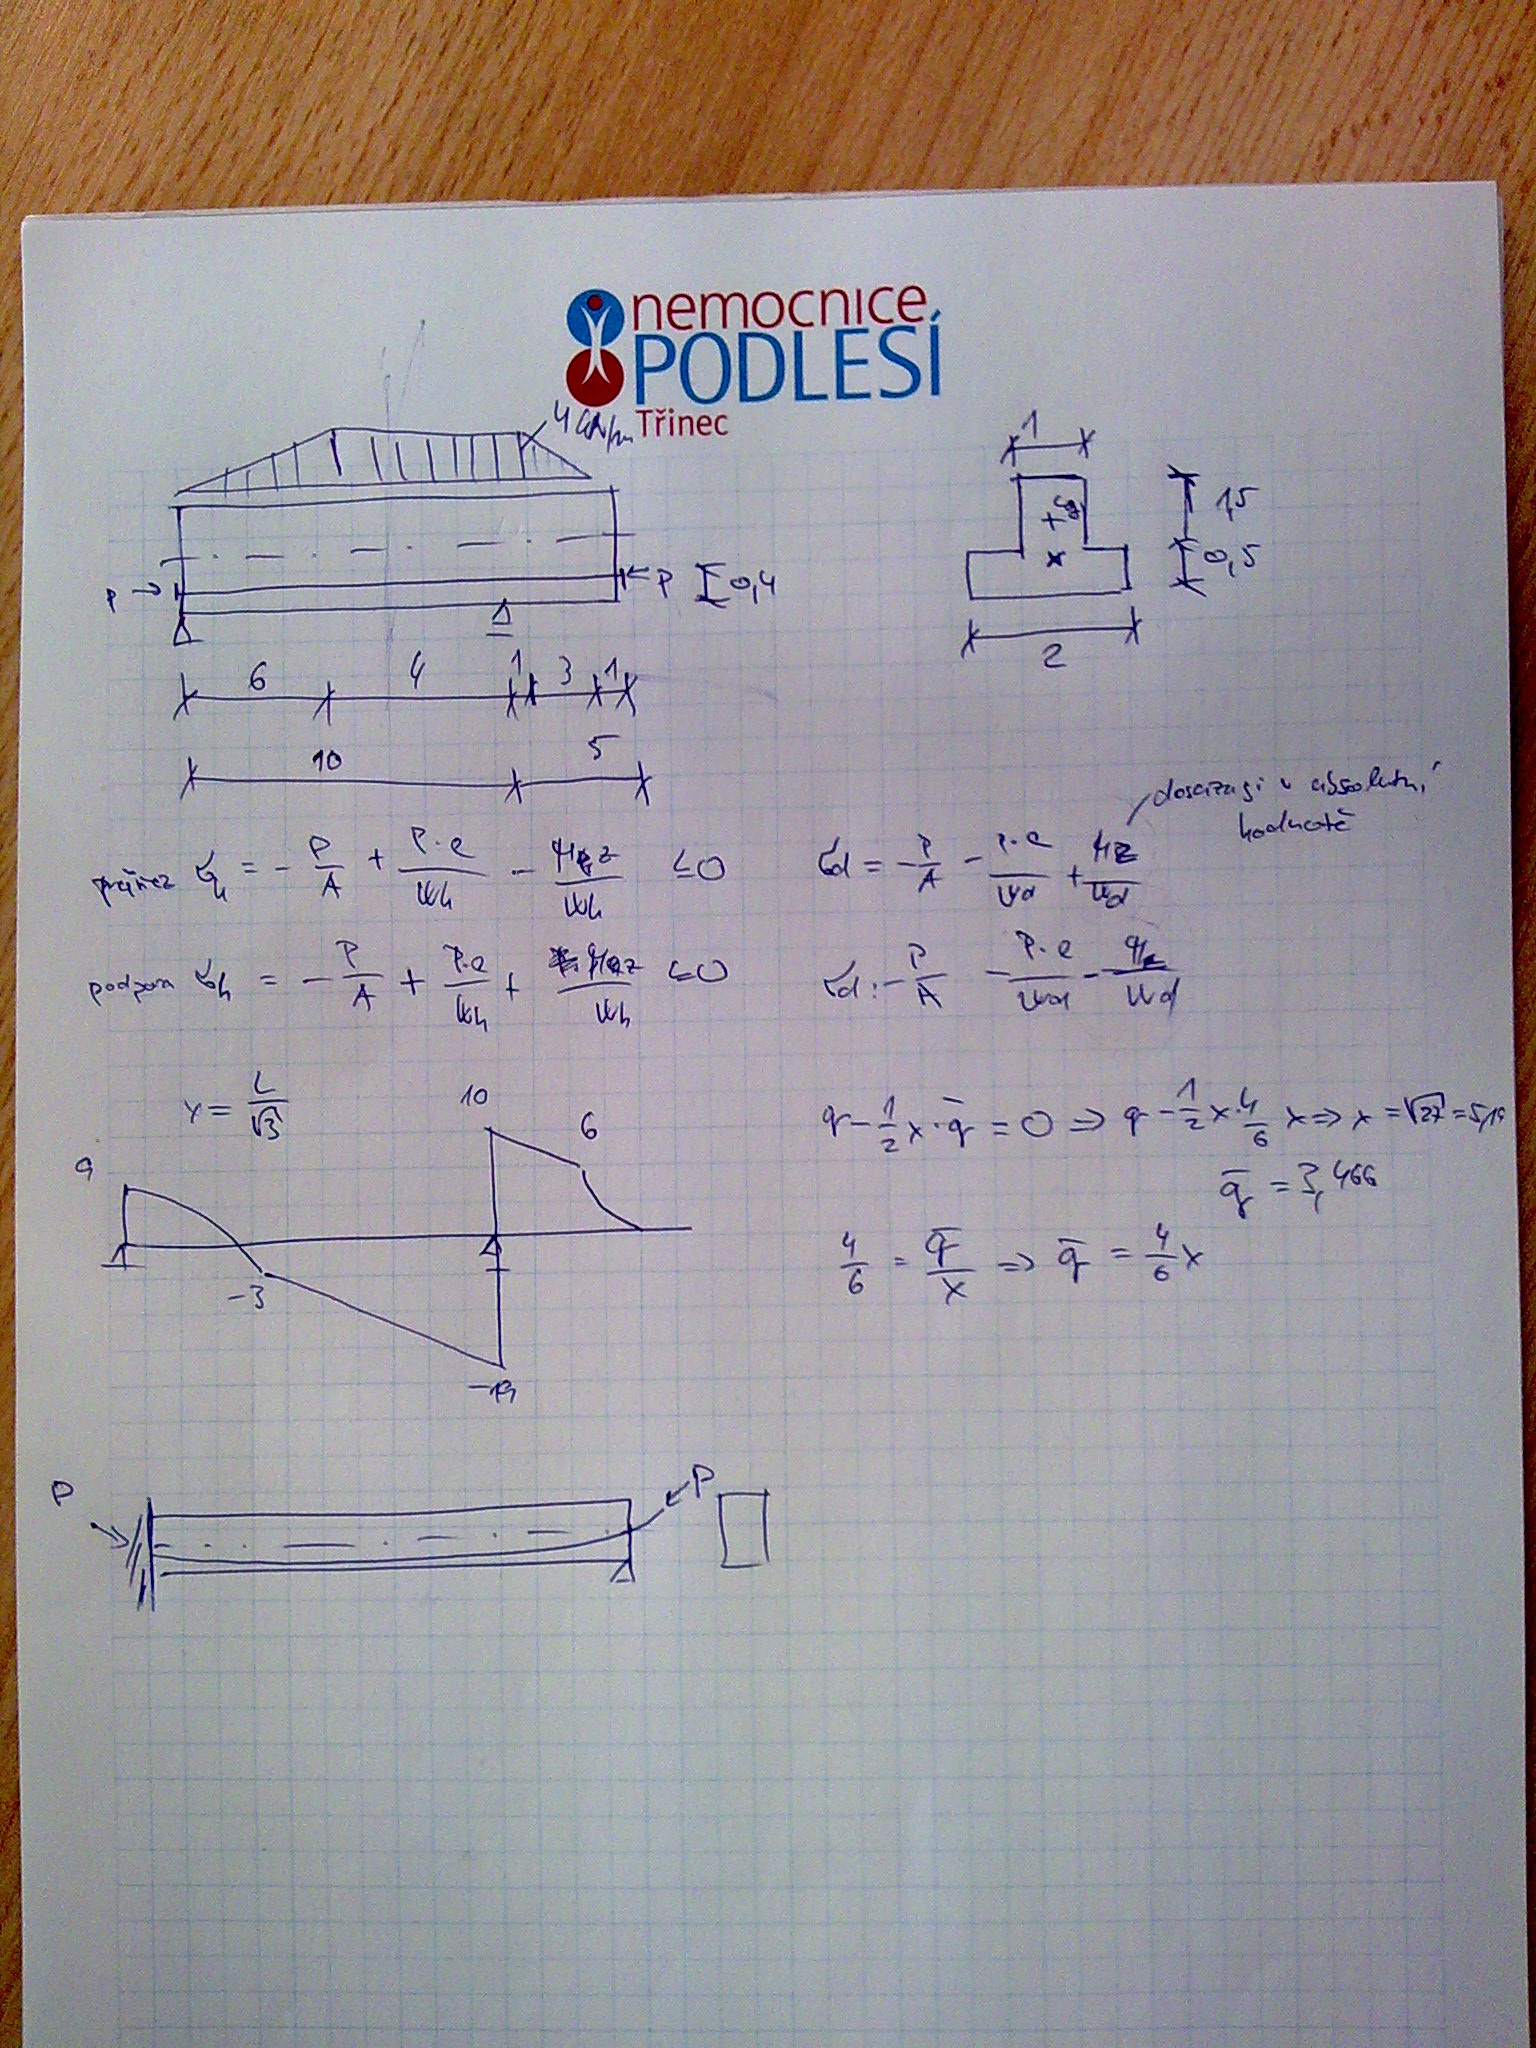 nemocnice
PODLESÍ
Třinec
1
1,5
0,5
2
P
P
0,4
6 4 1 3 1
10 5
dosazuji v absolutní
hodnotě
průřez σh = - P/A + P·e/Wh - /Wh ≤ 0
σd = - P/A - P·e/Wd + /Wd
podpora σh = - P/A + P·e/Wh + /Wh ≤ 0
σd: - P/A - P·e/Wd - /Wd
x = L/√3
10
6
9
-3
-19
9 - 1/2 x · q̄ = 0 ⇒ 9 - 1/2 x · 4/6 x ⇒ x = √27 = 5,19
q̄ = 3,466
4/6 = q̄/x ⇒ q̄ = 4/6 x
P
P